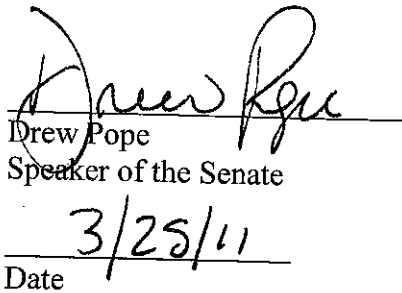 Drew Pope
Drew Pope
Speaker of the Senate
Date